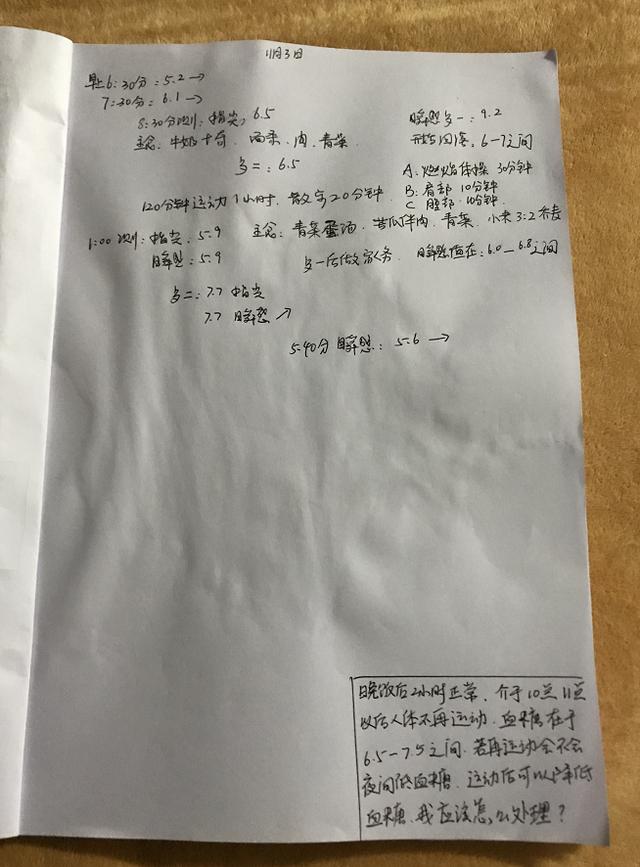 11月3日
早上6:30分:5.2→
7:30分:6.1→
8:30分测:指尖:6.5
瞬感 多一:9.2
主食:牛奶十奇 西柔 肉 青菜
回落:6-7之间
多二:6.5
A:燃脂体操 30分钟
120分钟运动1小时.散步20分钟
B:肩部 10分钟
C 腿部 10分钟
1:00测:指尖:5.9
主食:青菜蛋汤.苦瓜牛肉.青菜.小米3:2
瞬感:5.9
多一后做家务.瞬感值在:6.0-6.8之间
多二:7.7 指尖
7.7 瞬感↗
5:40分 瞬感:5.6→
晚饭后2小时正常.介于10点11点
以后人体不再运动.血糖在于
6.5-7.5之间.若再运动会不会
夜间低血糖.运动后可以降低
血糖.我应该怎么处理?